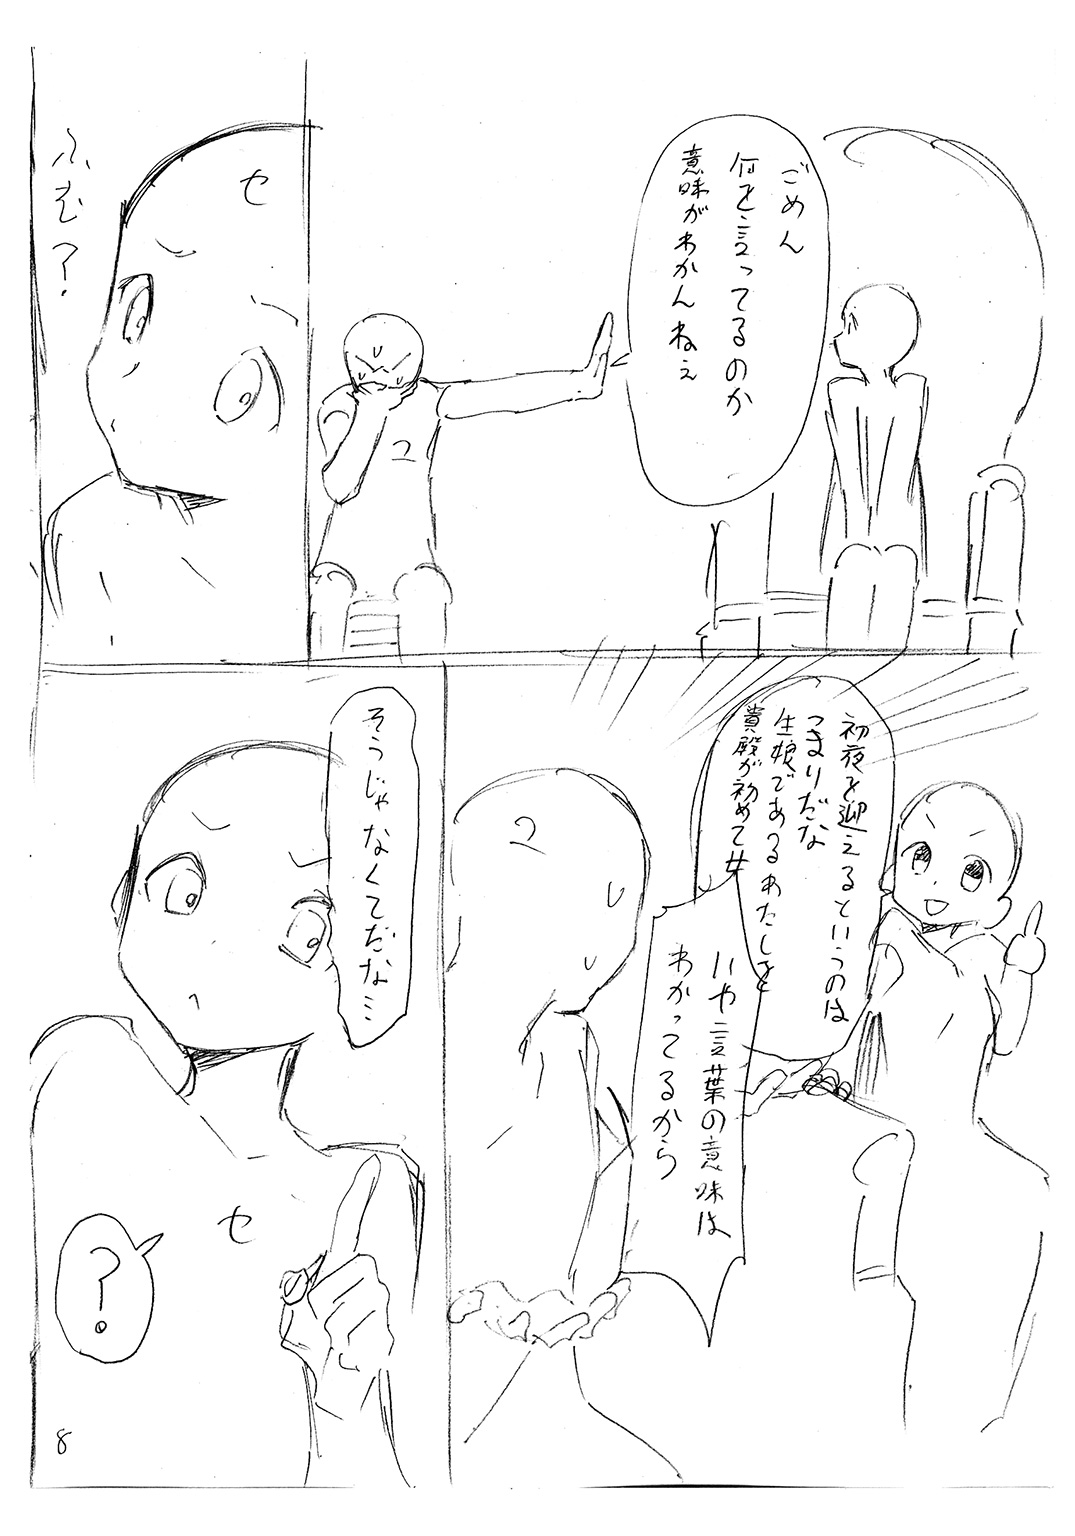 ごめん
何を言ってるのか
意味がわかんねぇ
ユ
セ
ふむ?
初夜を迎えるというのは
つまりだな
生娘であるあたしを
貴殿が初めて女
いや言葉の意味は
わかってるから
ユ
そうじゃなくてだな…
セ
?
8